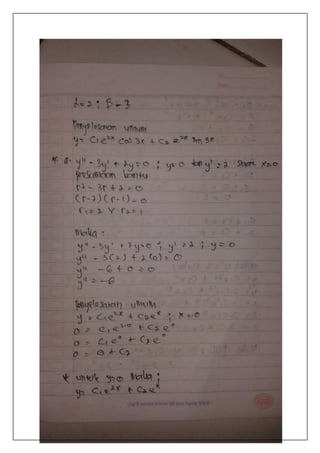 α=2 ; β=3
Penyelesaian umum
y= C1e^2x cos 3x + C2 e^2x sin 3x
* a. y'' - 3y' + 2y=0 ; y=0 dan y'=2 x=0
Persamaan bantu
r² - 3r + 2 = 0
(r-2)(r-1)=0
r1=2 V r2=1
Maka :
y'' - 3y' + 2y=0 ; y'=2 ; y=0
y'' - 3(2) + 2(0) = 0
y'' - 6 + 0 = 0
y'' = -6
Penyelesaian umum
y = C1e^2x + C2e^x ; x=0
0 = C1e^2.0 + C2e^0
0 = C1e^0 + C2e^0
0 = 0 + C2
* untuk y=0 Maka ;
y= C1e^2x + C2e^x